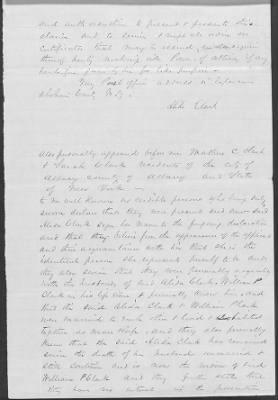 and authorize him to present & prosecute this
claim and to receive & receipt for orders or
certificates that may be issued
thereof hereby revoking all Power of attorney if any
heretofore given by me for like purpose
My Post Office address is
Alida Clark
Also personally appeared before me Mathew C. Clark
& Sarah Clark residents of the city of
Albany county of Albany and State
of New York
to me well known as credible persons who being duly
sworn declare that they were present and saw said
Alida Clark sign her name to the foregoing declaration
and that they believe from the appearance of the applicant
and their acquaintance with her that she is the
identical person she represents herself to be and
they also swear that they were personally acquainted
with the husband of said Alida Clark, William P
Clark in his life time & personally know her, and
that the said Alida Clark & William Clark
were married to each other & lived & cohabited
together as man & wife, and they also personally
know that the said Alida Clark has remained
since the death of her husband unmarried &
still continues and is now the widow of said
William P Clark and they further state that
they have no interest in the prosecution